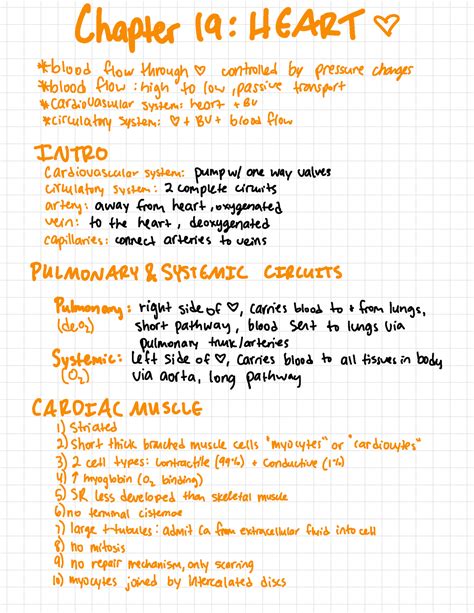 Chapter 19: HEART ♡
*blood flow through ♡ controlled by pressure changes
*blood flow: high to low, passive transport
*cardiovascular system: heart + BV
*circulatory system: ♡ + BV + blood flow
INTRO
cardiovascular system: pump w/ one way valves
circulatory system: 2 complete circuits
artery: away from heart, oxygenated
vein: to the heart, deoxygenated
capillaries: connect arteries to veins
PULMONARY & SYSTEMIC CIRCUITS
Pulmonary: right side of ♡, carries blood to + from lungs,
(deO₂) short pathway, blood sent to lungs via
pulmonary trunk/arteries
Systemic: left side of ♡, carries blood to all tissues in body
(O₂) via aorta, long pathway
CARDIAC MUSCLE
1) striated
2) short thick branched muscle cells "myocytes" or "cardiocytes"
3) 2 cell types: contractile (99%) + conductive (1%)
4) ↑ myoglobin (O₂ binding)
5) SR less developed than skeletal muscle
6) no terminal cisternae
7) large t-tubules: admit Ca from extracellular fluid into cell
8) no mitosis
9) no repair mechanism, only scarring
10) myocytes joined by intercalated discs